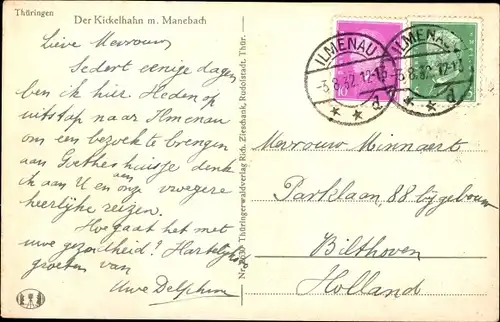 Thüringen
Der Kickelhahn m. Manebach
Lieve Mevrouw,
Sedert eenige dagen
ben ik hier. Heden op
uitstap naar Ilmenau
om een bezoek te brengen
aan Goethes huisje denk
ik aan U en aan onze vroegere
heerlijke reizen.
Hoe gaat het met
uwe gezondheid? Hartelijke
groeten van
Uwe Delphine
Thüringerwaldverlag Rich. Zieschank, Rudolstadt, Thür.
ILMENAU
-3.8.32.12-13
d
ILMENAU
-3.8.32.12-13
d
Mevrouw Minnaert
Parklaan, 88 bijgebouw
Bilthoven
Holland